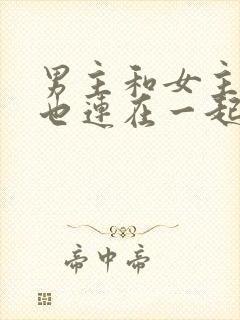 男主和女主
也连在一起
帝中帝